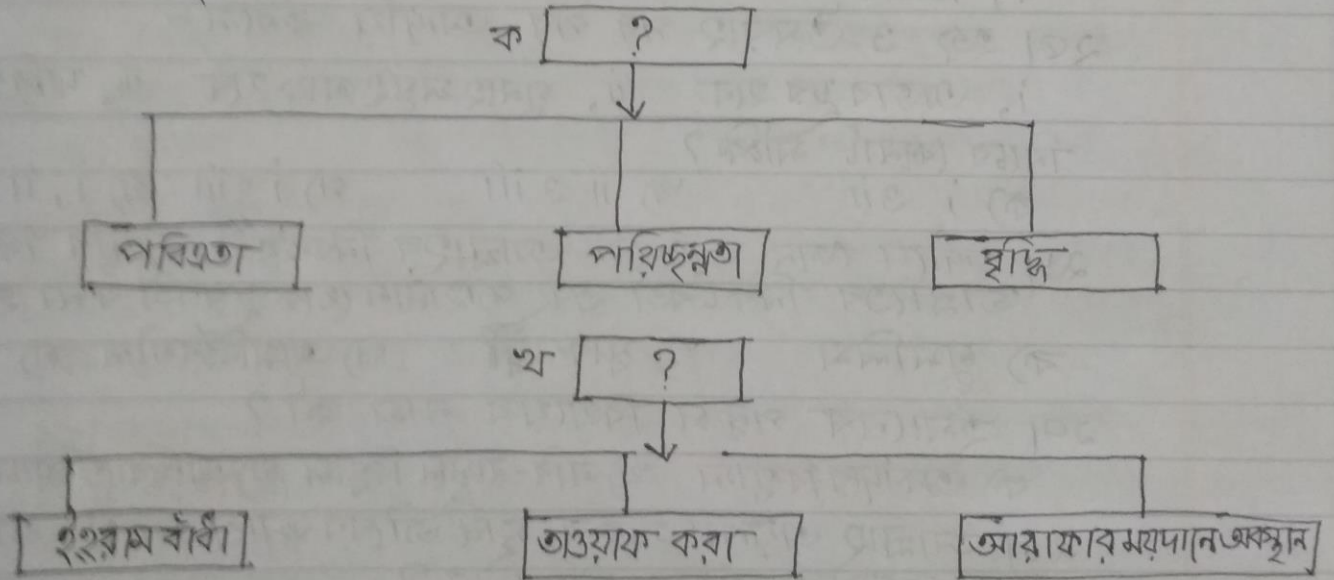 ক ?
পবিত্রতা পরিচ্ছন্নতা বৃদ্ধি
খ ?
ইহরাম বাঁধা তাওয়াফ করা আরাফার ময়দানে অবস্থান